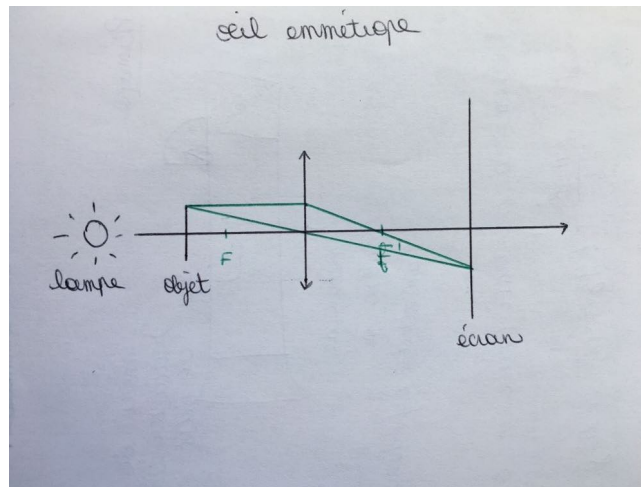 œil emmétrope
F
F'
lampe
objet
écran